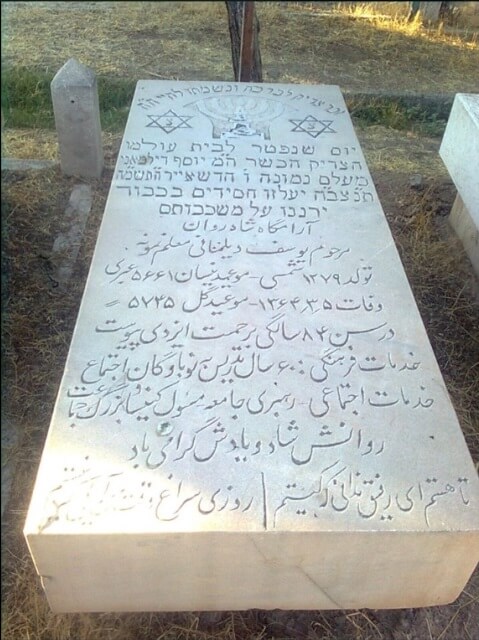 זכר צדיק לברכה ונשמתו לחיי
יום שנפטר לבית עולמו
הצדיק הכשר ה״מ יוסף דילמאני
מעלם נמונה
תנצב״ה יעלזו חסידים בכבוד
ירננו על משכבותם
آرامگاه شادروان
مرحوم یوسف دیلمانی معلم نمونه
تولد ۱۲۷۹ شمسی - موعید نیسان ۵۶۶۱ عبری
وفات ۱۳۶۴،۳،۵ - موعید گل ۵۷۴۵ =
در سن ۸۴ سالگی برحمت ایزدی پیوست
خدمات فرهنگی : ۶۰ سال تدریس به نوباوگان اجتماع
خدمات اجتماعی - رهبری جامعه مسئول کنیسا بزرگ جماعت
روانش شاد و یادش گرامی باد
تا هستم ای رفیق ندانی که کیستم | روزی سراغ